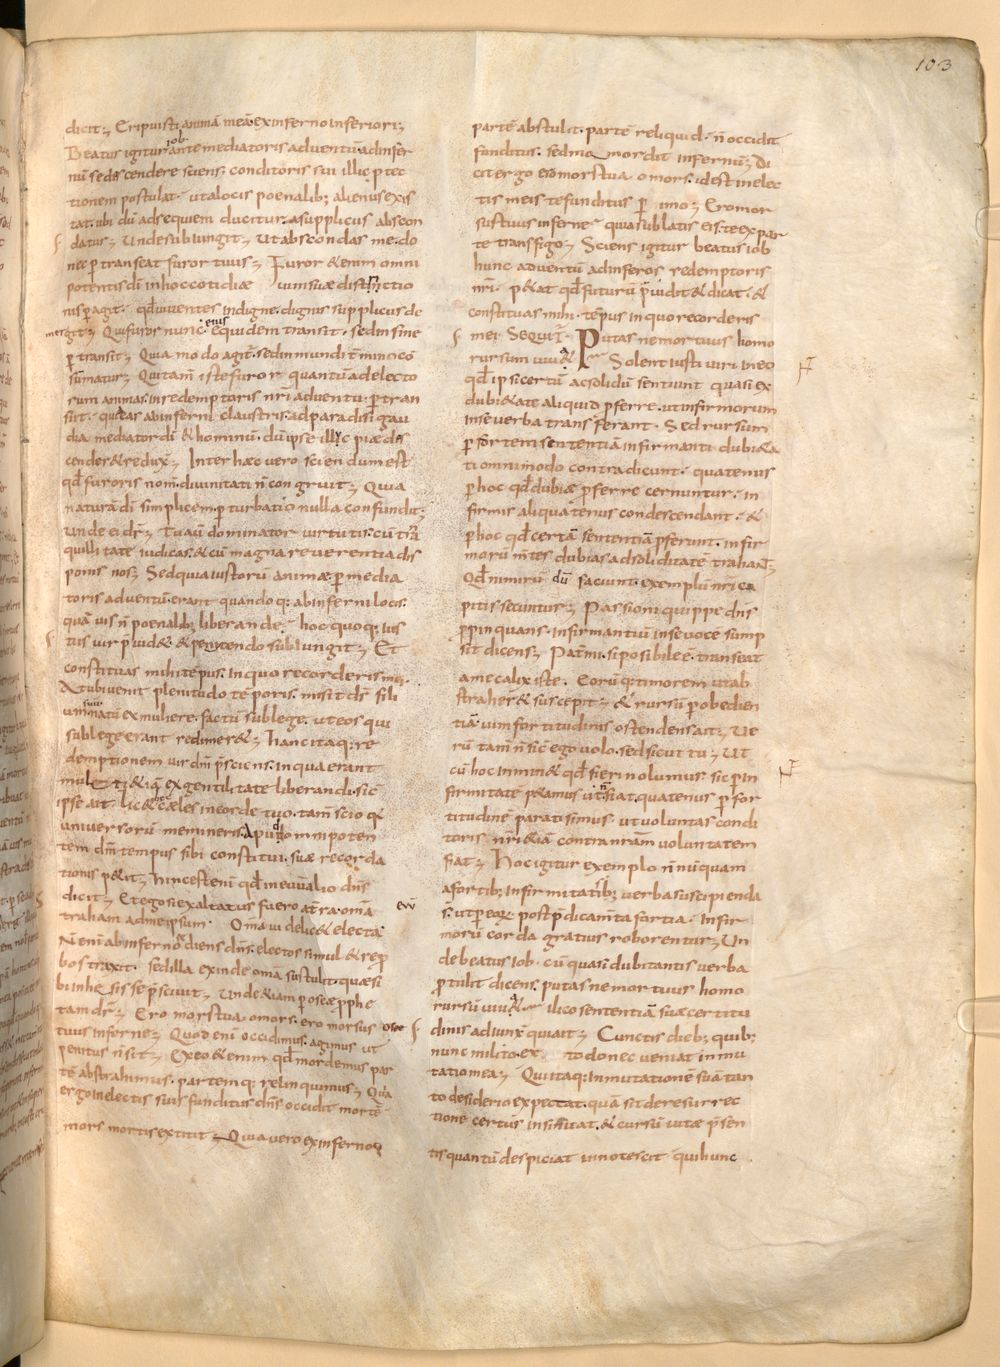 103
dicit; Eripuisti animā meā. ex inferno inferiori;
Beatus igitur iob ante mediatoris adventū. ad infer
nū se descendere sciens. conditoris sui illic ptec
tionem postulat. ut a locis poenalib; alienus exis
tat. ubi dū ad sequiem ducitur. a supplicus abscon
datur; Unde subiungit; Ut abscondas me. do
nec ptranseat furor tuus; Furor & enim omni
potentis dī in hoc cotidiae vim suae districtio
nis pagit. qd viventes indigne. dignis supplicus de
mergit; Qui furor nunc eius equidem transit. sed in fine
ptransit; Quia modo agit. sed in mundi t̄mino cō
sūmatur; Qui tam̄ iste furor quantū ad electo
rum animas. in redemptoris nr̄i adventu. ptran
siit. qui eas ab inferni claustris. ad paradisi gau
dia mediator dī & hominū. dū ipse illuc pie des
cender& redux; Inter haec vero sciendum est
qd furoris nom̄. divinitati n̄ congruit; Quia
naturā dī simplicem. pturbatio nulla confundit;
Unde ei dr̄; Tu aū dominator virtutis. cū tr̄a
quillitate iudicas. & cū magna reverentia dis
ponis nos; Sed quia iustorū animae. p media
toris adventū. erant quandoq: ab inferni locis.
quā vis n̄ poenalib; liberandae. hoc quoq; ius
tus vir p̄vid&. & petendo subiungit; Et
constituas mihi tēpus. in quo recorderis mei.
At ubi venit plenitudo tēporis. misit ds̄ fili
um suū natū ex muliere. factū sub lege. ut eos qui
sub lege erant redimer&; Hanc itaq: re
demptionem vir dn̄i p̄sciens. in qua erant
multi &iā ex gentilitate liberandi. sic
ipse ait. lic& haec celes in corde tuo. tam̄ scio qa
universorū memineris. Apud omnipoten
tem dm̄ tempus sibi constitui. suae recorda
tionis p&it; Hinc est enī qd in evvālio dns̄
dicit; Et ego si exaltatus fuero a t̄ra. omā
traham ad me ipsum. Omā videlic& electa.
Nn̄ enī ab inferno rediens dns̄. electos simul & rep
bos traxit. sed illa exinde omā sustulit. quae si
bi inhesisse p̄scivit; Unde &iam p oseae pphe
tam dr̄; Ero mors tua o mors. ero morsus osee
tuus inferne; Quod enī occidimus. agimus ut
penitus n̄ sit; Ex eo & enim qd mordemus par
tē abstrahimus. partemq: relinquimus; Quia
ergo in electis suis funditus dns̄. occidit mortē
mors mortis extitit; Quia vero ex inferno
partē abstulit. partē reliquid. n̄ occidit
funditus. sed momordit infernū; Di
cit ergo ero mors tua o mors. id est in elec
tis meis te funditus pimo; Ero mor
sus tuus inferne quia sublatis eis. te ex par
te transfigo; Sciens igitur beatus iob
hunc adventū ad inferos redemptoris
nr̄i. p&at qd futurū p̄vidit & dicat. &
constituas mihi tēpus in quo recorderis
mei. SEQUIT̄. Putas ne mortuus homo
rursum vivat. Solent iusti viri in eo
qd ipsi certū ac solidū sentiunt quasi ex
dubi&ate aliquid pferre. ut infirmorum
in se verba transferant. Sed rursum
p fortem sententiā infirmanti dubi&a
ti omnimodo contradicunt. quatenus
p hoc qd dubiae pferre cernuntur. in
firmis aliquatenus condescendant. &
p hoc qd certā sententiā pferunt. infir
morū m̄tes dubias ad soliditatē trahant;
Qd nimirū dū faciunt. exemplū nr̄i ca
pitis secuntur; Passioni quippe dns̄
ppinquans. infirmantiū in se vocē sump
sit dicens; Pat̄ mi. si posibile ē. transeat
a me calix iste. Eorū q: timorem ut ab
straher& suscepit; & rursū p obedien
tiā. vim fortitudinis ostendens ait; Ve
rū tam̄ n̄ sic̄ ego volo. sed sicut tu; Ut
cū hoc inmin& qd fieri nolumus. sic p in
firmitatē p&amus ut n̄ fiat. quatenus p for
titudinē parati simus. ut voluntas condi
toris nr̄i &iā contra nrām voluntatem
fiat; Hoc igitur exemplo n̄ nunquam
a fortib; infirmitatib; verba suscipienda
s. ut p eorū postp̄dicam̄ta fortia. infir
morū corda gratius roborentur; Un
de beatus iob. cū quasi dubitantis verba
ptulit dicens. putas ne mortuus homo
rursū vivat. ilico sententiā suae certitu
dinis adiunx̄ qua ait; Cunctis dieb; quib;
nunc milito. exto donec veniat inmu
tatio mea; Qui itaq: inmutationē suā tan
to desiderio expectat. quā sit de resurrec
tione certus insinuat. & cursū vitae p̄sen
tis quantū despiciat innotescit. qui hunc